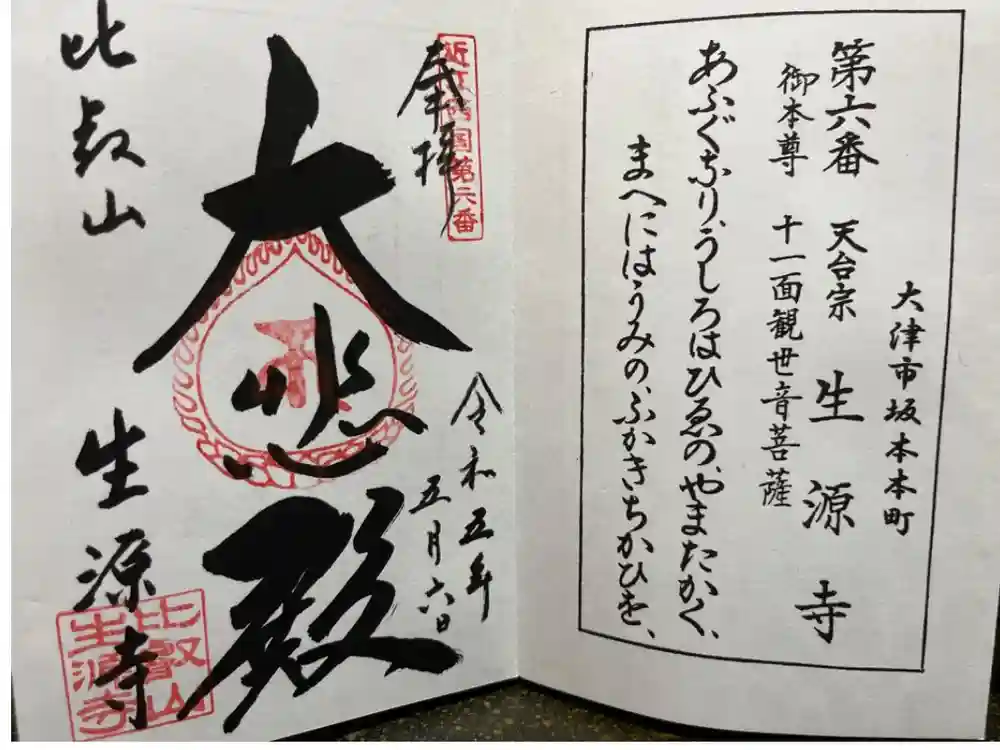 大津市坂本本町
第六番 天台宗 生源寺
御本尊 十一面観世音菩薩
あふぐなり、うしろはひゑの、やまたかく、
まへにはうみの、ふかきちかひを、
近江西国第六番
奉拝
令和五年
五月六日
大悲殿
比叡山 生源寺
比叡山
生源寺